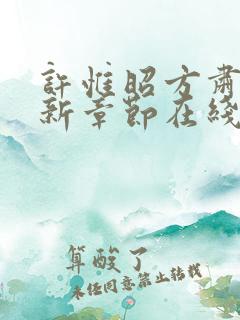 許惟昭方肅
新章節在綫
算酸了
未任同意禁止转载